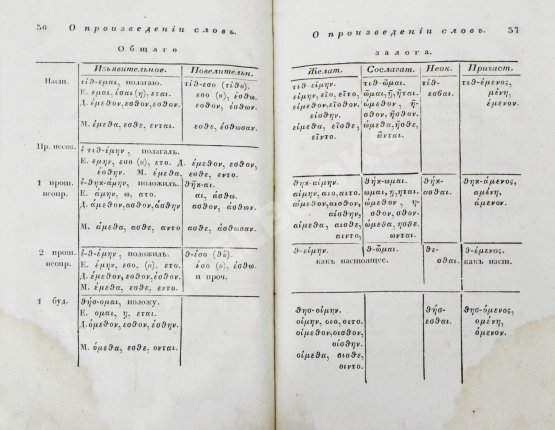 36 О произведеніи словъ.
Общаго
Изъявительное. Повелительн.
Наст. τίϑ-εμαι, полагаю. τίϑ-εσο (τίϑȣ)
Е. εμαι, εσαι (η), εται. Е. εσο (ȣ), έσϑω.
Д. έμεϑον, εσϑον, εσϑον. εσϑον, έσϑων.
М. έμεϑα, εσϑε, ενται. εσϑε, έσϑωσαν.
Пр. несов. ἐτιϑ-έμην, полагалъ.
Е. εμην, εσο (ȣ), ετο. Д. έμεϑον, εσϑον,
έσϑην. М. έμεϑα, εσϑε, εντο.
1 прош. ἐϑηκ-άμην, положилъ. ϑῆκ-αι.
неопр. Е. άμην, ω, ατο. αι, άσϑω.
Д. άμεϑον, ασϑον, άσϑην ασϑον, άσϑων.
М. άμεϑα, ασϑε, αντο ασϑε, άσϑωσαν.
2 прош. ἐϑ-έμην, положилъ. ϑ-έσο (ϑȣ̃).
неопр. Е. έμην, εσο (ȣ), ετο. έσο (ȣ), έσϑω.
Д. έμεϑον, εσϑον, έσϑην. и проч.
М. έμεϑα, εσϑε, εντο.
1 буд. ϑήσ-ομαι, положу.
Е. ομαι, η, εται.
Д. όμεϑον, εσϑον, εσϑον.
М. όμεϑα, εσϑε, ονται.
О произведеніи словъ. 37
залога.
Желат. Сослагат. Неок. Причаст.
τιϑ-είμην. τιϑ-ῶμαι. τίϑ- τιϑ-έμενος,
είμην, εῖο, εῖτο, ῶμαι, ῆ, ῆται. εσϑαι. μένη,
είμεϑον, εῖσϑον, ώμεϑον, ῆ- έμενον.
είσϑην. σϑον, ῆσϑον.
είμεϑα, εῖσϑε, ώμεϑα, ῆσϑε,
εῖντο. ῶνται.
ϑηκ-αίμην. ϑήκ-ωμαι. ϑήκ- ϑηκ-άμενος,
αίμην, αιο, αιτο. ωμαι, η, ηται. ασϑαι. αμένη,
αίμεϑον, αισϑον, ώμεϑον, η- άμενον.
αίσϑην, σϑον, ησϑον.
αίμεϑα, αισϑε, ώμεϑα, ησϑε,
αιντο, ωνται.
ϑ-είμην. ϑ-ῶμαι. ϑέ- ϑ-έμενος.
какъ настоящее. σϑαι. какъ наст.
ϑησ-οίμην. ϑήσ- ϑησ-όμενος,
οίμην, οιο, οιτο. εσϑαι. ομένη,
οίμεϑον, οισϑον, όμενον.
οίσϑην.
οίμεϑα, οισϑε,
οιντο.